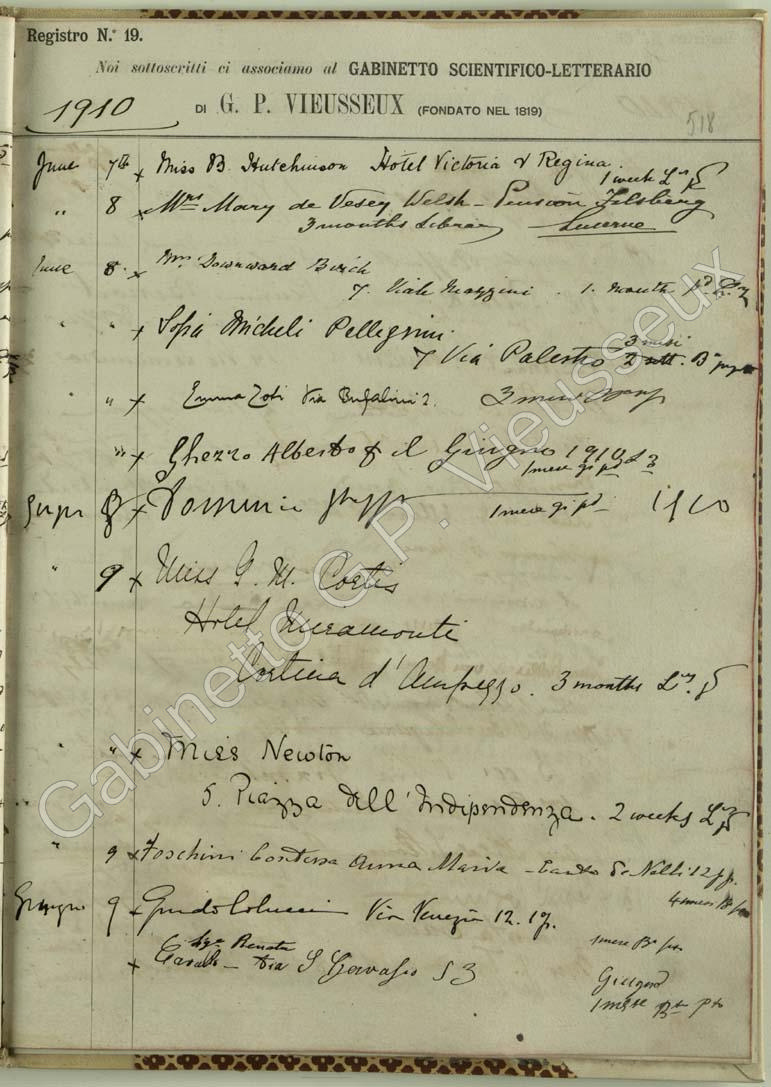 Registro N.° 19.
Noi sottoscritti ci associamo al GABINETTO SCIENTIFICO-LETTERARIO
1910 DI G. P. VIEUSSEUX (FONDATO NEL 1819)
518
June 7th x Miss B. Hutchinson Hotel Victoria & Regina.
1 week
" 8 x Mrs Mary de Vesey Welsh - Pension Felsberg
3 months Library Lucerne
June 8. x Mrs Downward Birch
7. Viale Mazzini . 1. month pd
" " x Sofia Micheli Pellegrini
3 mesi
7 Via Palestro 2 sett.
" x Emma Via Bufalini 2. 3 mesi
" x Ghezzo Alberto il Giugno 1910
1 mese gi pd
8 x 1 mese gi pd 1910
" 9 x Miss G. M. Cortis
Hotel Miramonti
Cortina d'Ampezzo. 3 months
" x Miss Newton
5. Piazza dell'Indipendenza. 2 weeks
" 9 x Foschini Contessa Anna Maria - Canto de Nelli 12 pp.
4 mesi
Giugno 9 x Guido Colucci Via Venezia 12.
1 mese
Renata
x Via S Gervasio 53
Giugno
1 mese
Gabinetto G.P. Vieusseux